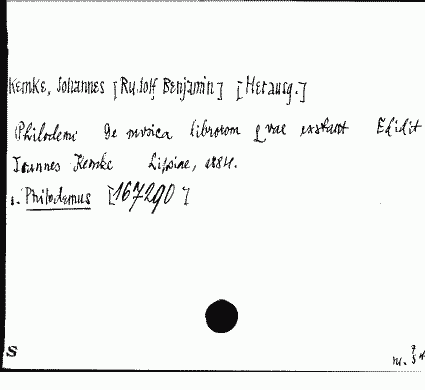 Kemke, Johannes [Rudolf Benjamin] [Herausg.]
Philodemi de musica librorum quae exstant Edidit
Ioannes Kemke Lipsiae, 1884.
s. Philodemus [167290]
S